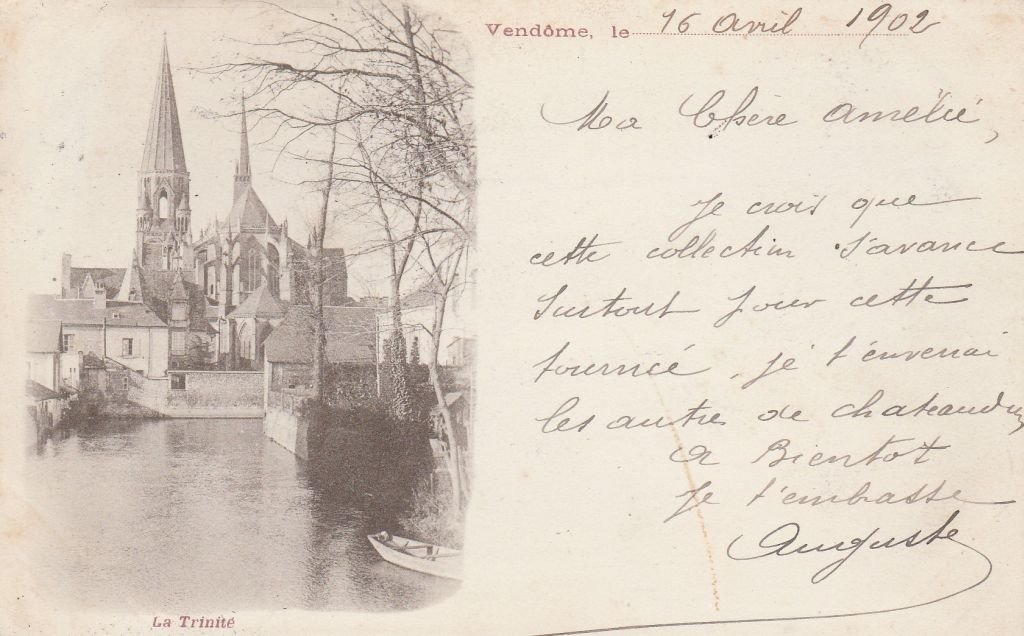 Vendôme, le 16 Avril 1902
Ma Chère Amélie,
Je crois que
cette collection s'avance
Surtout pour cette
tournée, je t'enverrai
les autres de chateaudun
A Bientot
Je t'embrasse
Auguste
La Trinité